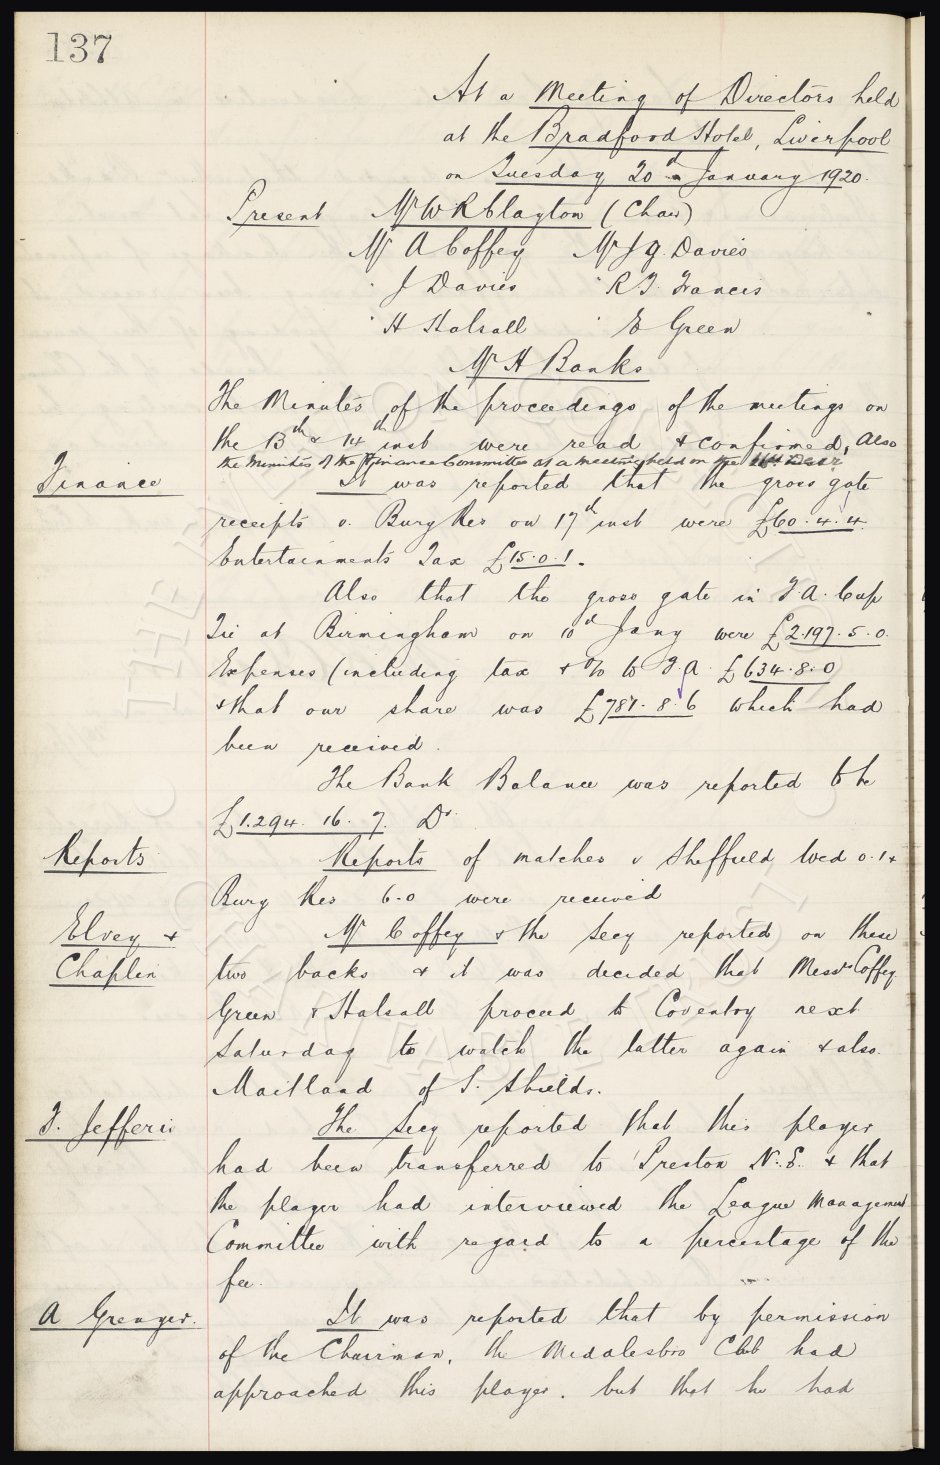 137
At a Meeting of Directors held
at the Bradford Hotel, Liverpool
on Tuesday 20th January 1920.
Present Mr W R Clayton (Chair)
Mr A Coffey Mr J G. Davies
" J Davies " R T. Francis
" H Halsall " E Green
Mr H Banks
The Minutes of the proceedings of the meetings on
the 13th & 14th inst were read & confirmed, Also
the minutes of the Finance Committee at a meeting held on the
Finance
It was reported that the gross gate
receipts v. Bury Res on 17th inst were £60.4.4.
Entertainments Tax £15.0.1.
Also that the gross gate in F.A. Cup
Tie at Birmingham on 10th Jany were £2.197.5.0.
Expenses (including tax & % to F.A. £634.8.0)
& that our share was £781.8.6 which had
been received.
The Bank Balance was reported to be
£1.294.16.7. Dr.
Reports
Reports of matches v Sheffield Wed 0.1 &
Bury Res 6.0 were received
Elvey &
Chaplin
Mr Coffey & the Secy reported on these
two backs & it was decided that Messrs Coffey
Green & Halsall proceed to Coventry next
Saturday to watch the latter again & also
Maitland of S. Shields.
F. Jefferis
The Secy reported that this player
had been transferred to Preston N.E. & that
the player had interviewed the League Management
Committee with regard to a percentage of the
fee.
A Grenyer.
It was reported that by permission
of the Chairman, the Middlesbro Club had
approached this player. but that he had